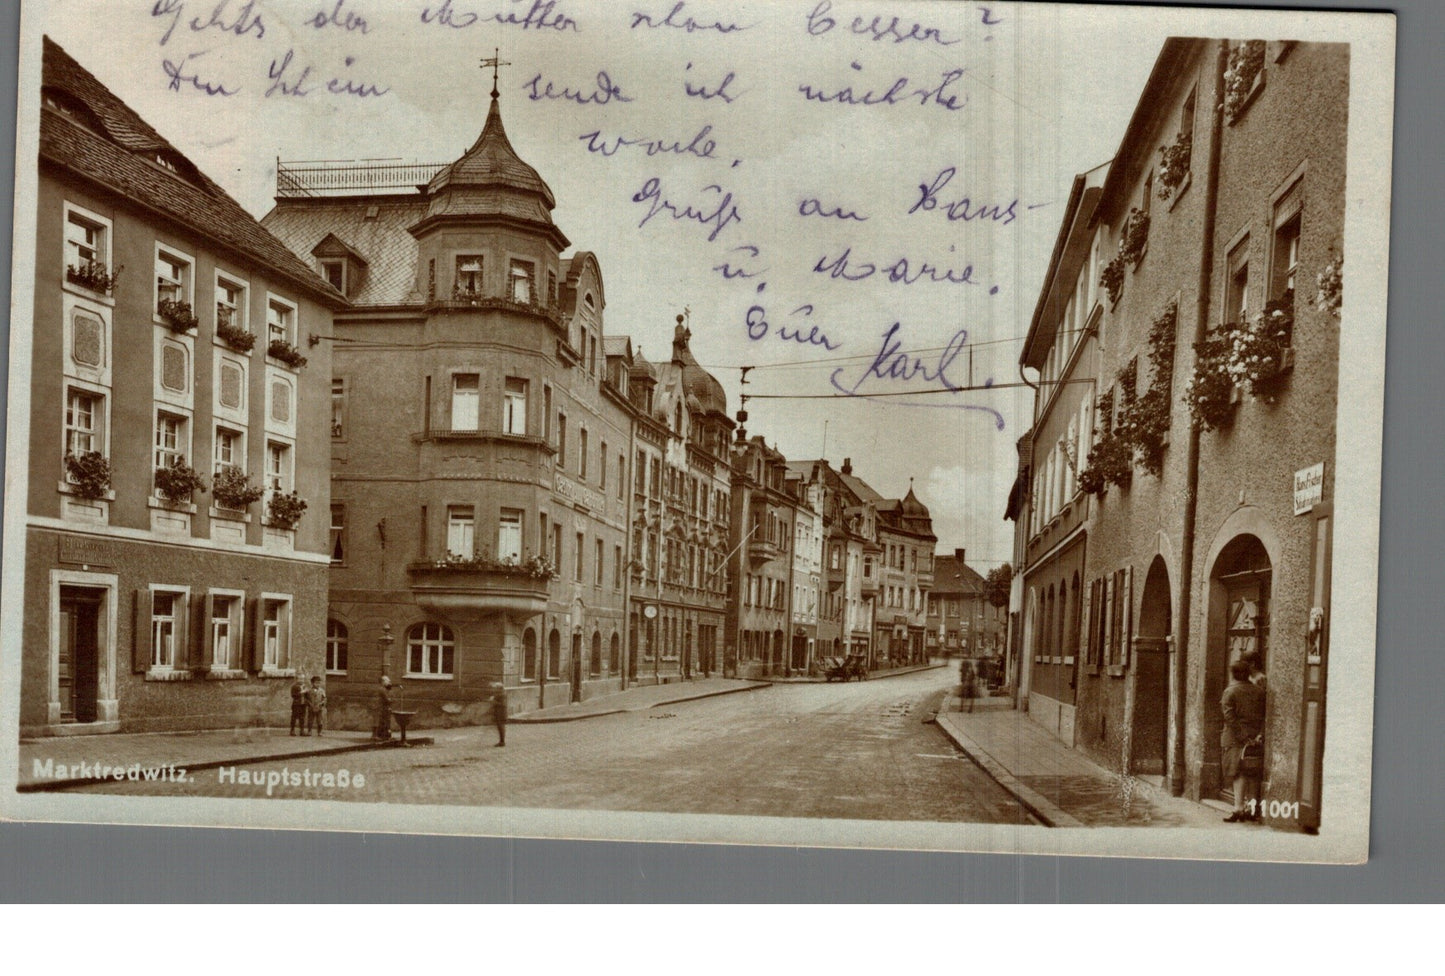 Gehts der Mutter schon besser?
Den Schein sende ich nächste
Woche.
Grüße an Hans
u. Marie.
Euer Karl.
Marktredwitz. Hauptstraße
11001